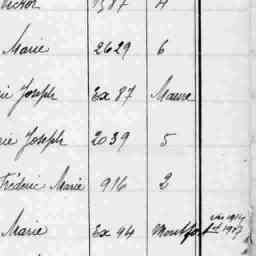 Victor 1387 4
Marie 2629 6
ie Joseph Ex 87 Maure
rie Joseph 2039 5
Frédéric Marie 916 2
Marie Ex 94 Montfort